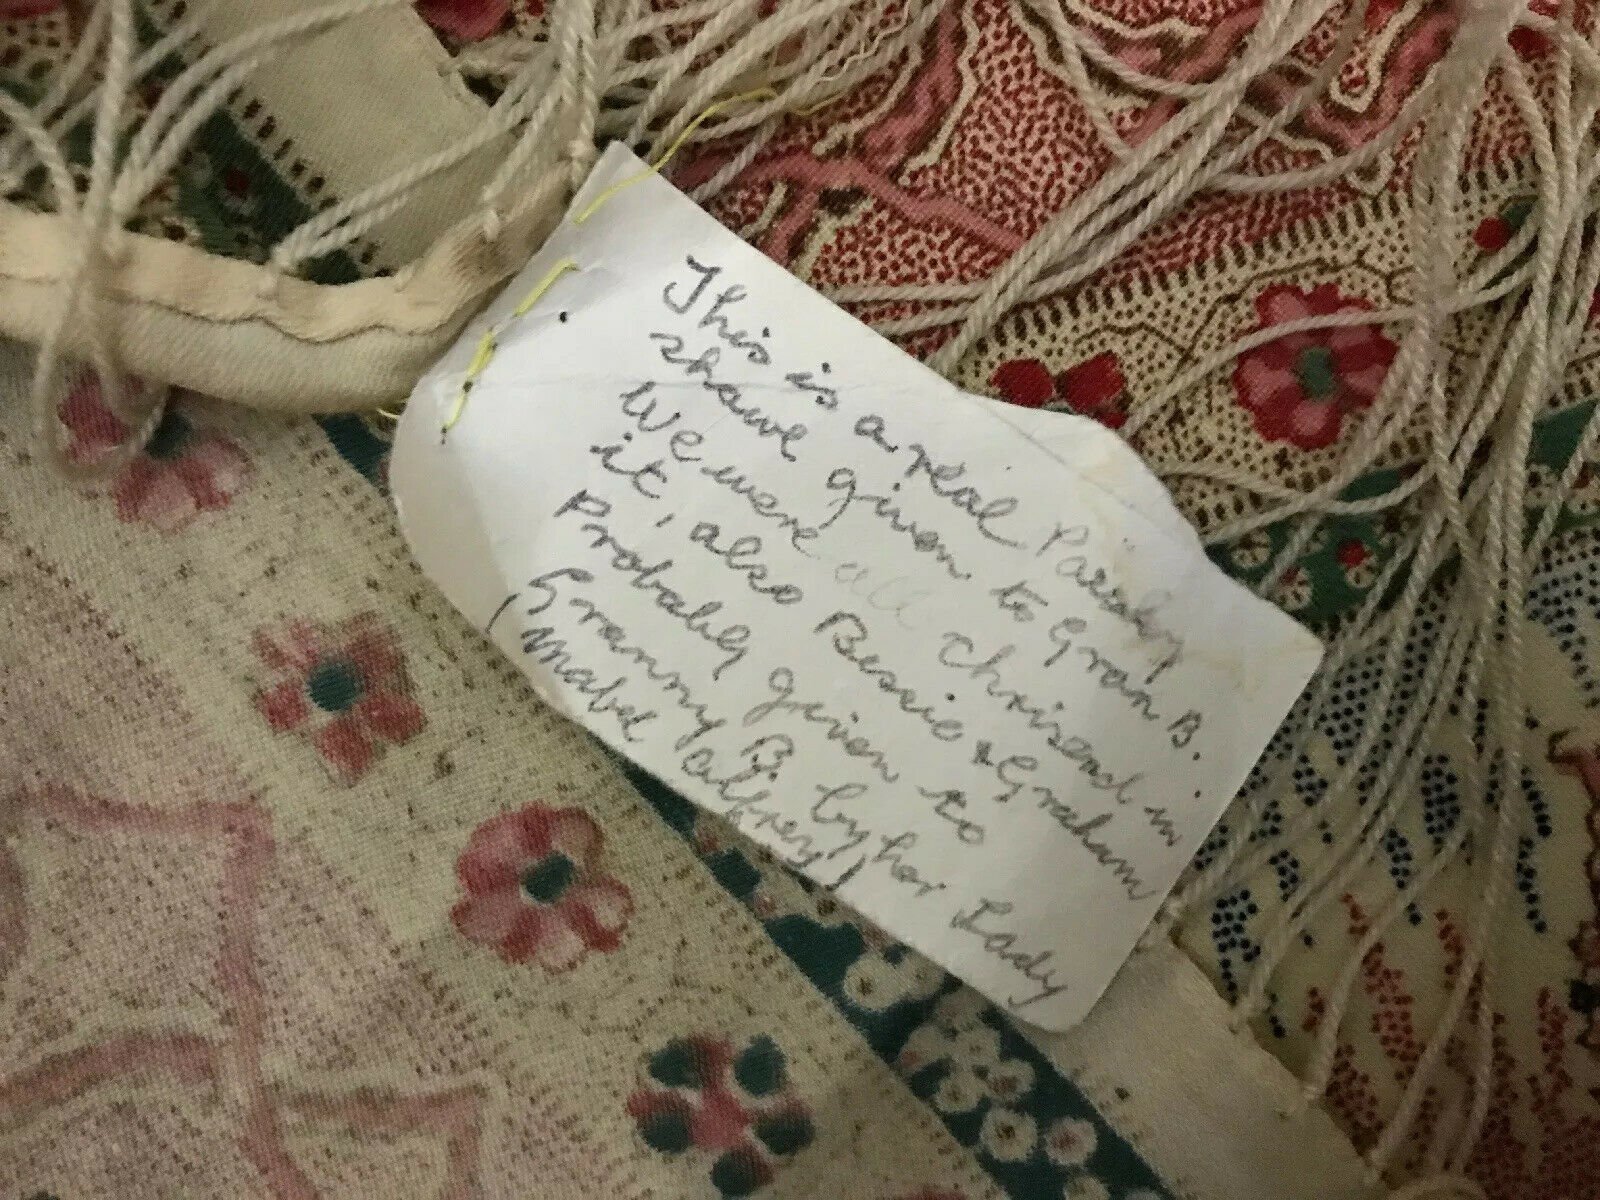 This is a real Paisley
shawl given to Gran B.
We were all chrisend in
it, also Bessie & Graham
Probably given to
Granny B. by her Lady
(Mabel